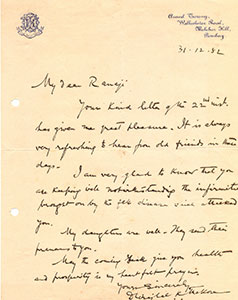 Road,
Malabar Hill,
Bombay
31-12-82
My dear Ranaji
Your kind letter of the 22nd inst.
has given me great pleasure. It is always
very refreshing to hear from old friends in these
days.
I am very glad to know that you
are keeping well notwithstanding the infirmities
brought on by the disease which attacked
you.
My daughters are well. They send their
to you.
May the coming year give you health
and prosperity is my heartfelt prayer.
Yours Sincerely